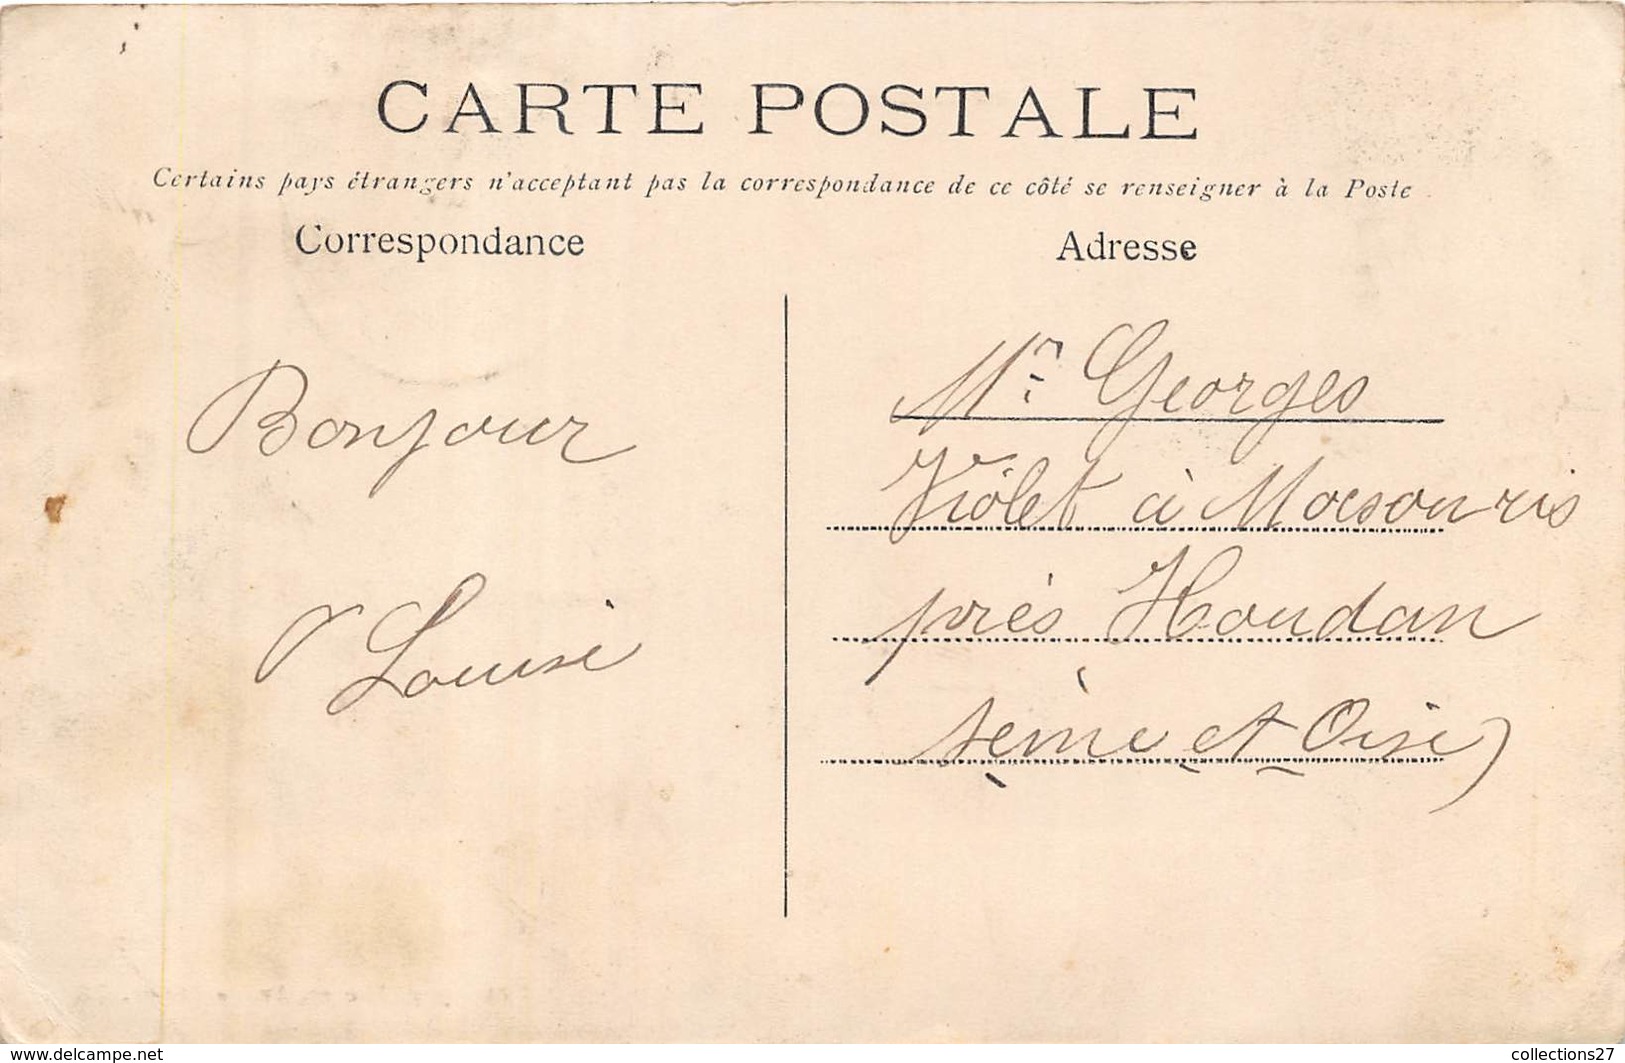 CARTE POSTALE
Certains pays étrangers n'acceptant pas la correspondance de ce côté se renseigner à la Poste
Correspondance
Adresse
Bonjour
Louise
Mr Georges
Violet à
près Houdan
seine et Oise)
www.delcampe.net
collections27